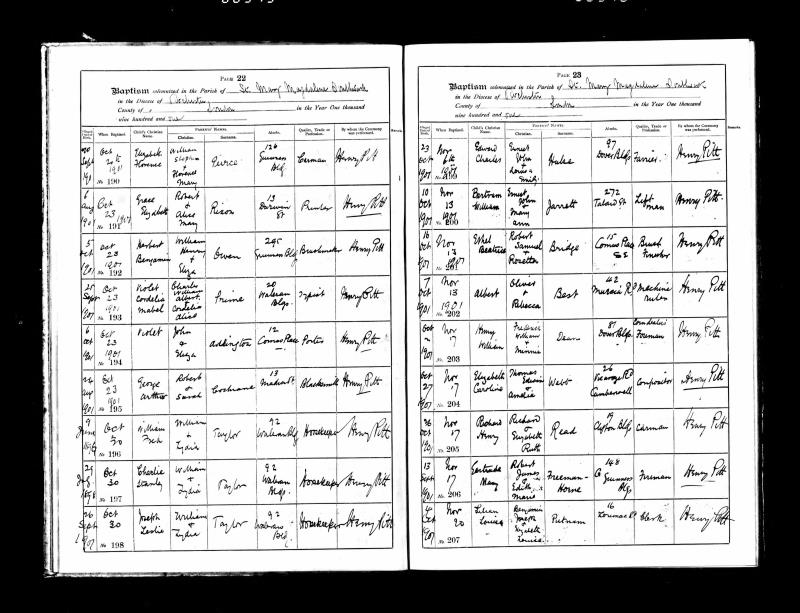 PAGE 22
Baptism solemnized in the Parish of St. Mary Magdalene Southwark
in the Diocese of Rochester
County of London in the Year One thousand
nine hundred and
When Baptized. Child's Christian Name. Parents' Names. Christian. Surname. Abode. Quality, Trade or Profession. By whom the Ceremony was performed.
20 Sept Oct 20th 1901 No. 190 Elizabeth Florence William Stephen & Florence Mary Peirce 126 Guinness Bdgs Carman Henry Pitt
6 Aug 1901 Oct 23 1901 No. 191 Grace Elizabeth Robert & Alice Mary Rixon 13 Darwin St Printer Henry Pitt
5 Oct 1901 Oct 23 1901 No. 192 Herbert Benjamin William Henry & Eliza Owen 295 Guinness Bdgs Brushmaker Henry Pitt
25 Sept 1901 Oct 23 1901 No. 193 Violet Cordelia Mabel Charles William Albert Cordelia Alice Prime 20 Waleran Bdgs Typist Henry Pitt
6 Oct 1901 Oct 23 1901 No. 194 Violet John & Eliza Addington 12 Comus Place Porter Henry Pitt
Aug 1901 Oct 23 1901 No. 195 George Arthur Robert & Sarah Cochrane 13 Blacksmith Henry Pitt
9 June Oct 30 No. 196 William William & Lydia Taylor 92 Waleran Bdgs Horsekeeper Henry Pitt
25 Oct 30 No. 197 Charlie Stanley William & Lydia Taylor 92 Waleran Bdgs Horsekeeper Henry Pitt
26 Sept 1901 Oct 30 No. 198 Joseph Leslie William & Lydia Taylor 92 Waleran Bdgs Horsekeeper Henry Pitt
PAGE 23
Baptism solemnized in the Parish of St. Mary Magdalene Southwark
in the Diocese of Rochester
County of London in the Year One thousand
nine hundred and
When Baptized. Child's Christian Name. Parents' Names. Christian. Surname. Abode. Quality, Trade or Profession. By whom the Ceremony was performed. Remarks.
23 Oct 1901 Nov 6th 1901 Edward Charles Ernest John & Louisa Emily Hulse 97 Dover Bdgs Farrier Henry Pitt
10 Oct 1901 Nov 13 1901 No. 200 Bertram William Ernest John & Mary Ann Jarrett 272 Tabard St Lift man Henry Pitt
16 Oct 1901 Nov 13 1901 No. 201 Ethel Beatrice Robert Samuel & Rosetta Bridge 15 Comus Place SE Brush Henry Pitt
7 Oct 1901 Nov 13 1901 No. 202 Albert Oliver & Rebecca Best 42 Machine Henry Pitt
Oct 1901 Nov 17 No. 203 Henry William Frederick William & Minnie Deans 87 Dover Bdgs Foreman Henry Pitt
Oct 27 1901 Nov 17 No. 204 Elizabeth Caroline Thomas Edwin & Amelia Webb 26 Camberwell Compositor Henry Pitt
26 Oct 1901 Nov 17 No. 205 Richard Henry Richard & Elizabeth Ruth Read 19 Bdgs Carman Henry Pitt
13 Sept 1901 Nov 17 No. 206 Gertrude Mary Robert James & Edith Marie Freeman-Horne 148 Guinness Bdgs Fireman Henry Pitt
4 Oct 1901 Nov 20 No. 207 Lilian Louisa Benjamin Joseph & Elizabeth Louisa Putnam 16 Clerk Henry Pitt